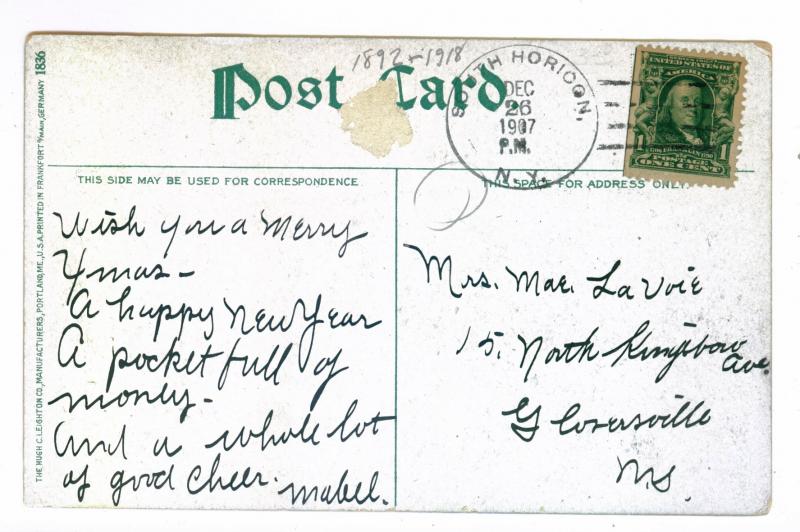 1892-1918
Post Card.
SOUTH HORICON,
DEC
26
1907
P.M.
N.Y.
UNITED STATES OF
AMERICA
FRANKLIN
1 1
POSTAGE
ONE CENT
THIS SIDE MAY BE USED FOR CORRESPONDENCE
THIS SPACE FOR ADDRESS ONLY.
Wish you a Merry
Xmas-
A happy New Year
A pocket full of
money-
And a whole lot
of good cheer.
Mabel.
Mrs. Mae. La Voie
15. North Kingsboro
Ave.
Gloversville
N.Y.
THE HUGH C. LEIGHTON CO., MANUFACTURERS, PORTLAND, ME., U.S.A. PRINTED IN FRANKFORT o/MAIN, GERMANY 1836